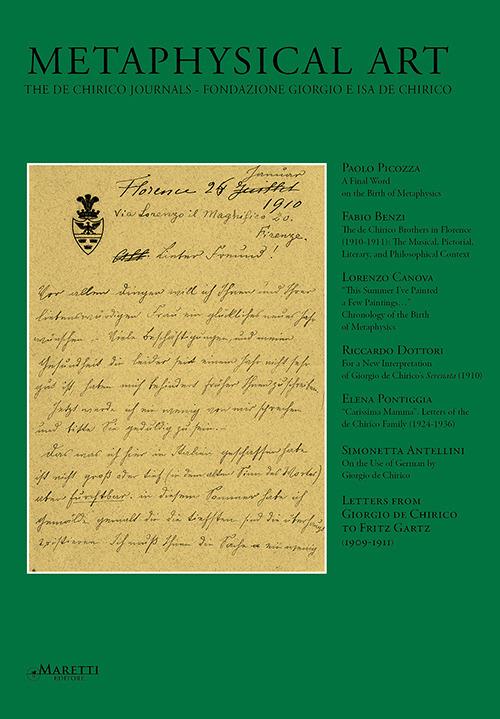 METAPHYSICAL ART
THE DE CHIRICO JOURNALS - FONDAZIONE GIORGIO E ISA DE CHIRICO
Januar
Florence 26 Juillet
1910
Via Lorenzo il Magnifico 20.
Firenze.
Lieber Freund!
Vor allen dingen will ich Ihnen und Ihrer
liebenswürdigen Frau ein glückliches neues Jahr
wünschen. Viele Beschäftigungen, und meine
Gesundheit die leider seit einem Jahr nicht sehr
gut ist, haben mich behindert früher Ihnen zu schreiben.
Jetzt werde ich ein wenig von mir sprechen
und bitte Sie geduldig zu sein.
Das was ich hier in Italien geschaffen habe
ist nicht groß oder tief (in dem alten Sinn des Wortes)
aber furchtbar. in diesem Sommer habe ich
Gemälde gemalt die die tiefsten sind die überhaupt
existieren. Ich muß Ihnen die Sache ein wenig
PAOLO PICOZZA
A Final Word
on the Birth of Metaphysics
FABIO BENZI
The de Chirico Brothers in Florence
(1910-1911): The Musical, Pictorial,
Literary, and Philosophical Context
LORENZO CANOVA
"This Summer I've Painted
a Few Paintings…"
Chronology of the Birth
of Metaphysics
RICCARDO DOTTORI
For a New Interpretation
of Giorgio de Chirico's Serenata (1910)
ELENA PONTIGGIA
"Carissima Mamma". Letters of the
de Chirico Family (1924-1936)
SIMONETTA ANTELLINI
On the Use of German by
Giorgio de Chirico
LETTERS FROM
GIORGIO DE CHIRICO
TO FRITZ GARTZ
(1909-1911)
MARETTI
EDITORE